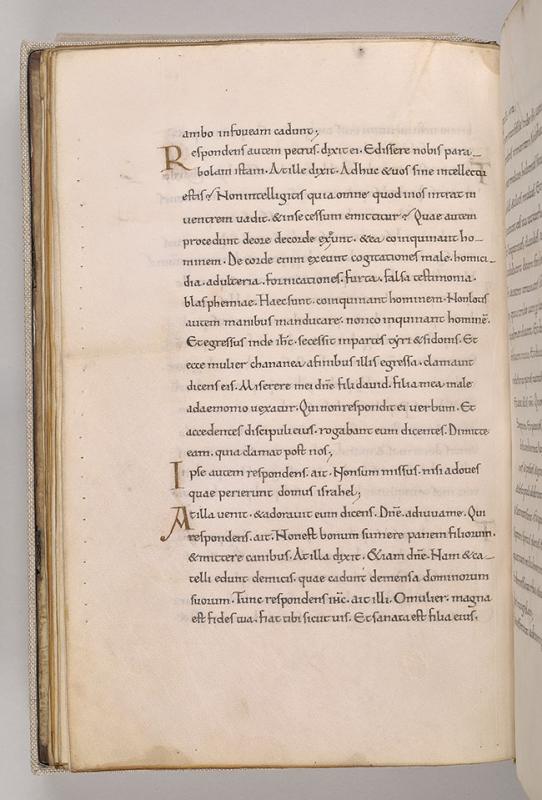 ambo in foveam cadunt;
Respondens autem petrus. dixit ei. Edissere nobis para
bolam istam. At ille dixit. Adhuc & uos sine intellectu
estis? Non intelligitis quia omne quod in os intrat in
uentrem uadit. & in secessum emittitur? Quae autem
procedunt de ore de corde exeunt. & ea coinquinant ho-
minem. De corde enim exeunt cogitationes male. homici-
dia. adulteria. fornicationes. furta. falsa testimonia.
blasphemiae. Haec sunt. coinquinant hominem. Non lotis
autem manibus manducare. non coinquinant hominē.
Et egressus inde ihc̄. secessit in partes tyri & sidonis. Et
ecce mulier chananea a finibus illis egressa. clamauit
dicens ei. Miserere mei dn̄e fili dauid. filia mea male
a daemonio uexatur. Qui non respondit ei uerbum. Et
accedentes discipuli eius. rogabant eum dicentes. Dimitte
eam. quia clamat post nos;
Ipse autem respondens. ait. Non sum missus. nisi ad oues
quae perierunt domus israhel;
At illa uenit. & adorauit eum dicens. Dn̄e. adiuua me. Qui
respondens. ait. Non est bonum sumere panem filiorum.
& mittere canibus. At illa dixit. Etiam dn̄e. Nam & ca-
telli edunt de micis. quae cadunt de mensa dominorum
suorum. Tunc respondens ihc̄. ait illi. O mulier. magna
est fides tua. fiat tibi sicut uis. Et sanata est filia eius.